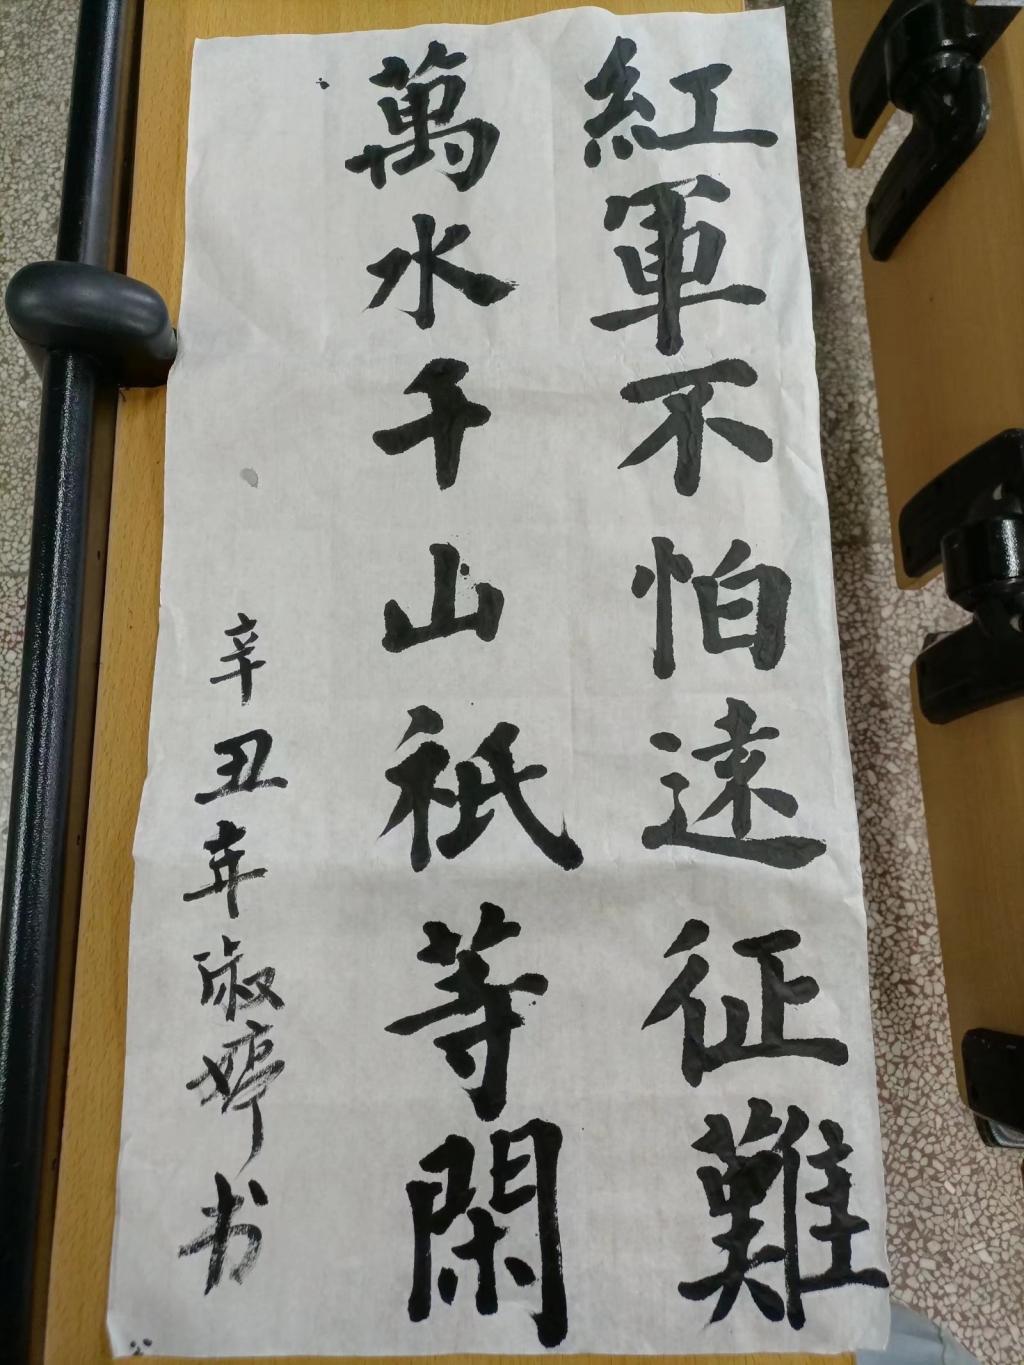 紅軍不怕遠征難
萬水千山祇等閑
辛丑年淑婷书